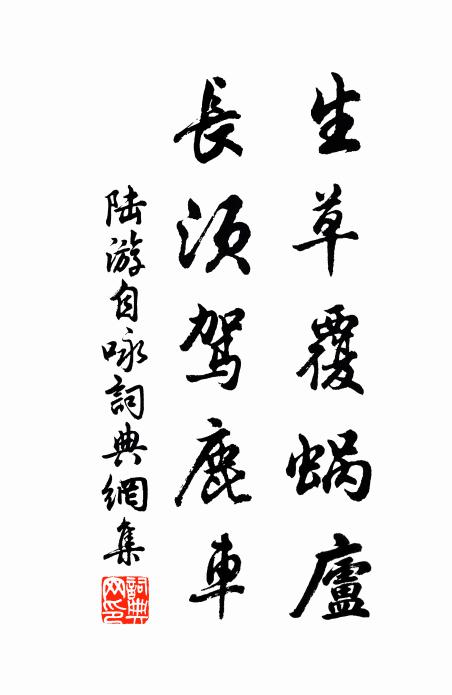 生草覆蝸廬
長須駕鹿車
陸游自咏詞典網集
詞典
网印